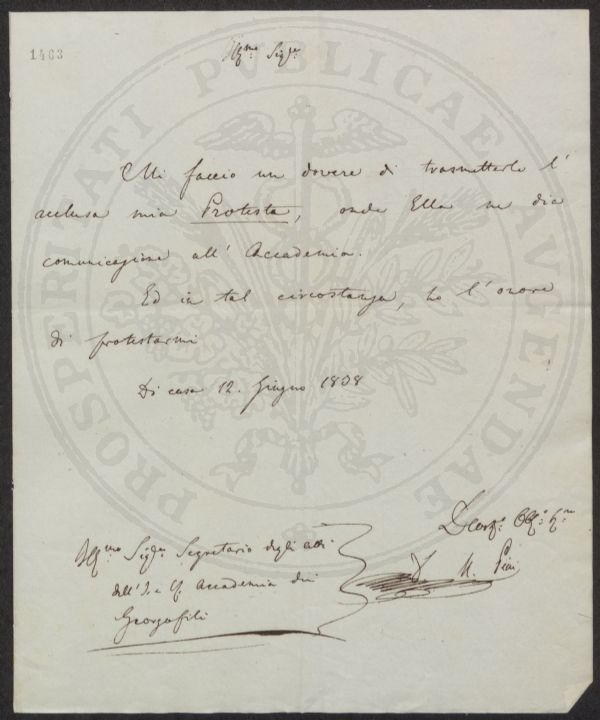 1463
Ill.mo Sig.re
Mi faccio un dovere di trasmetterle l'
acclusa mia Protesta, onde Ella ne dia
comunicazione all' Accademia.
Ed in tal circostanza, ho l'onore
di protestarmi
Di casa 12. Giugno 1838
Ill.mo Sig.re Segretario degli atti
dell' I. e R. Accademia dei
Georgofili
PROSPERITATI PUBLICAE AUGENDAE